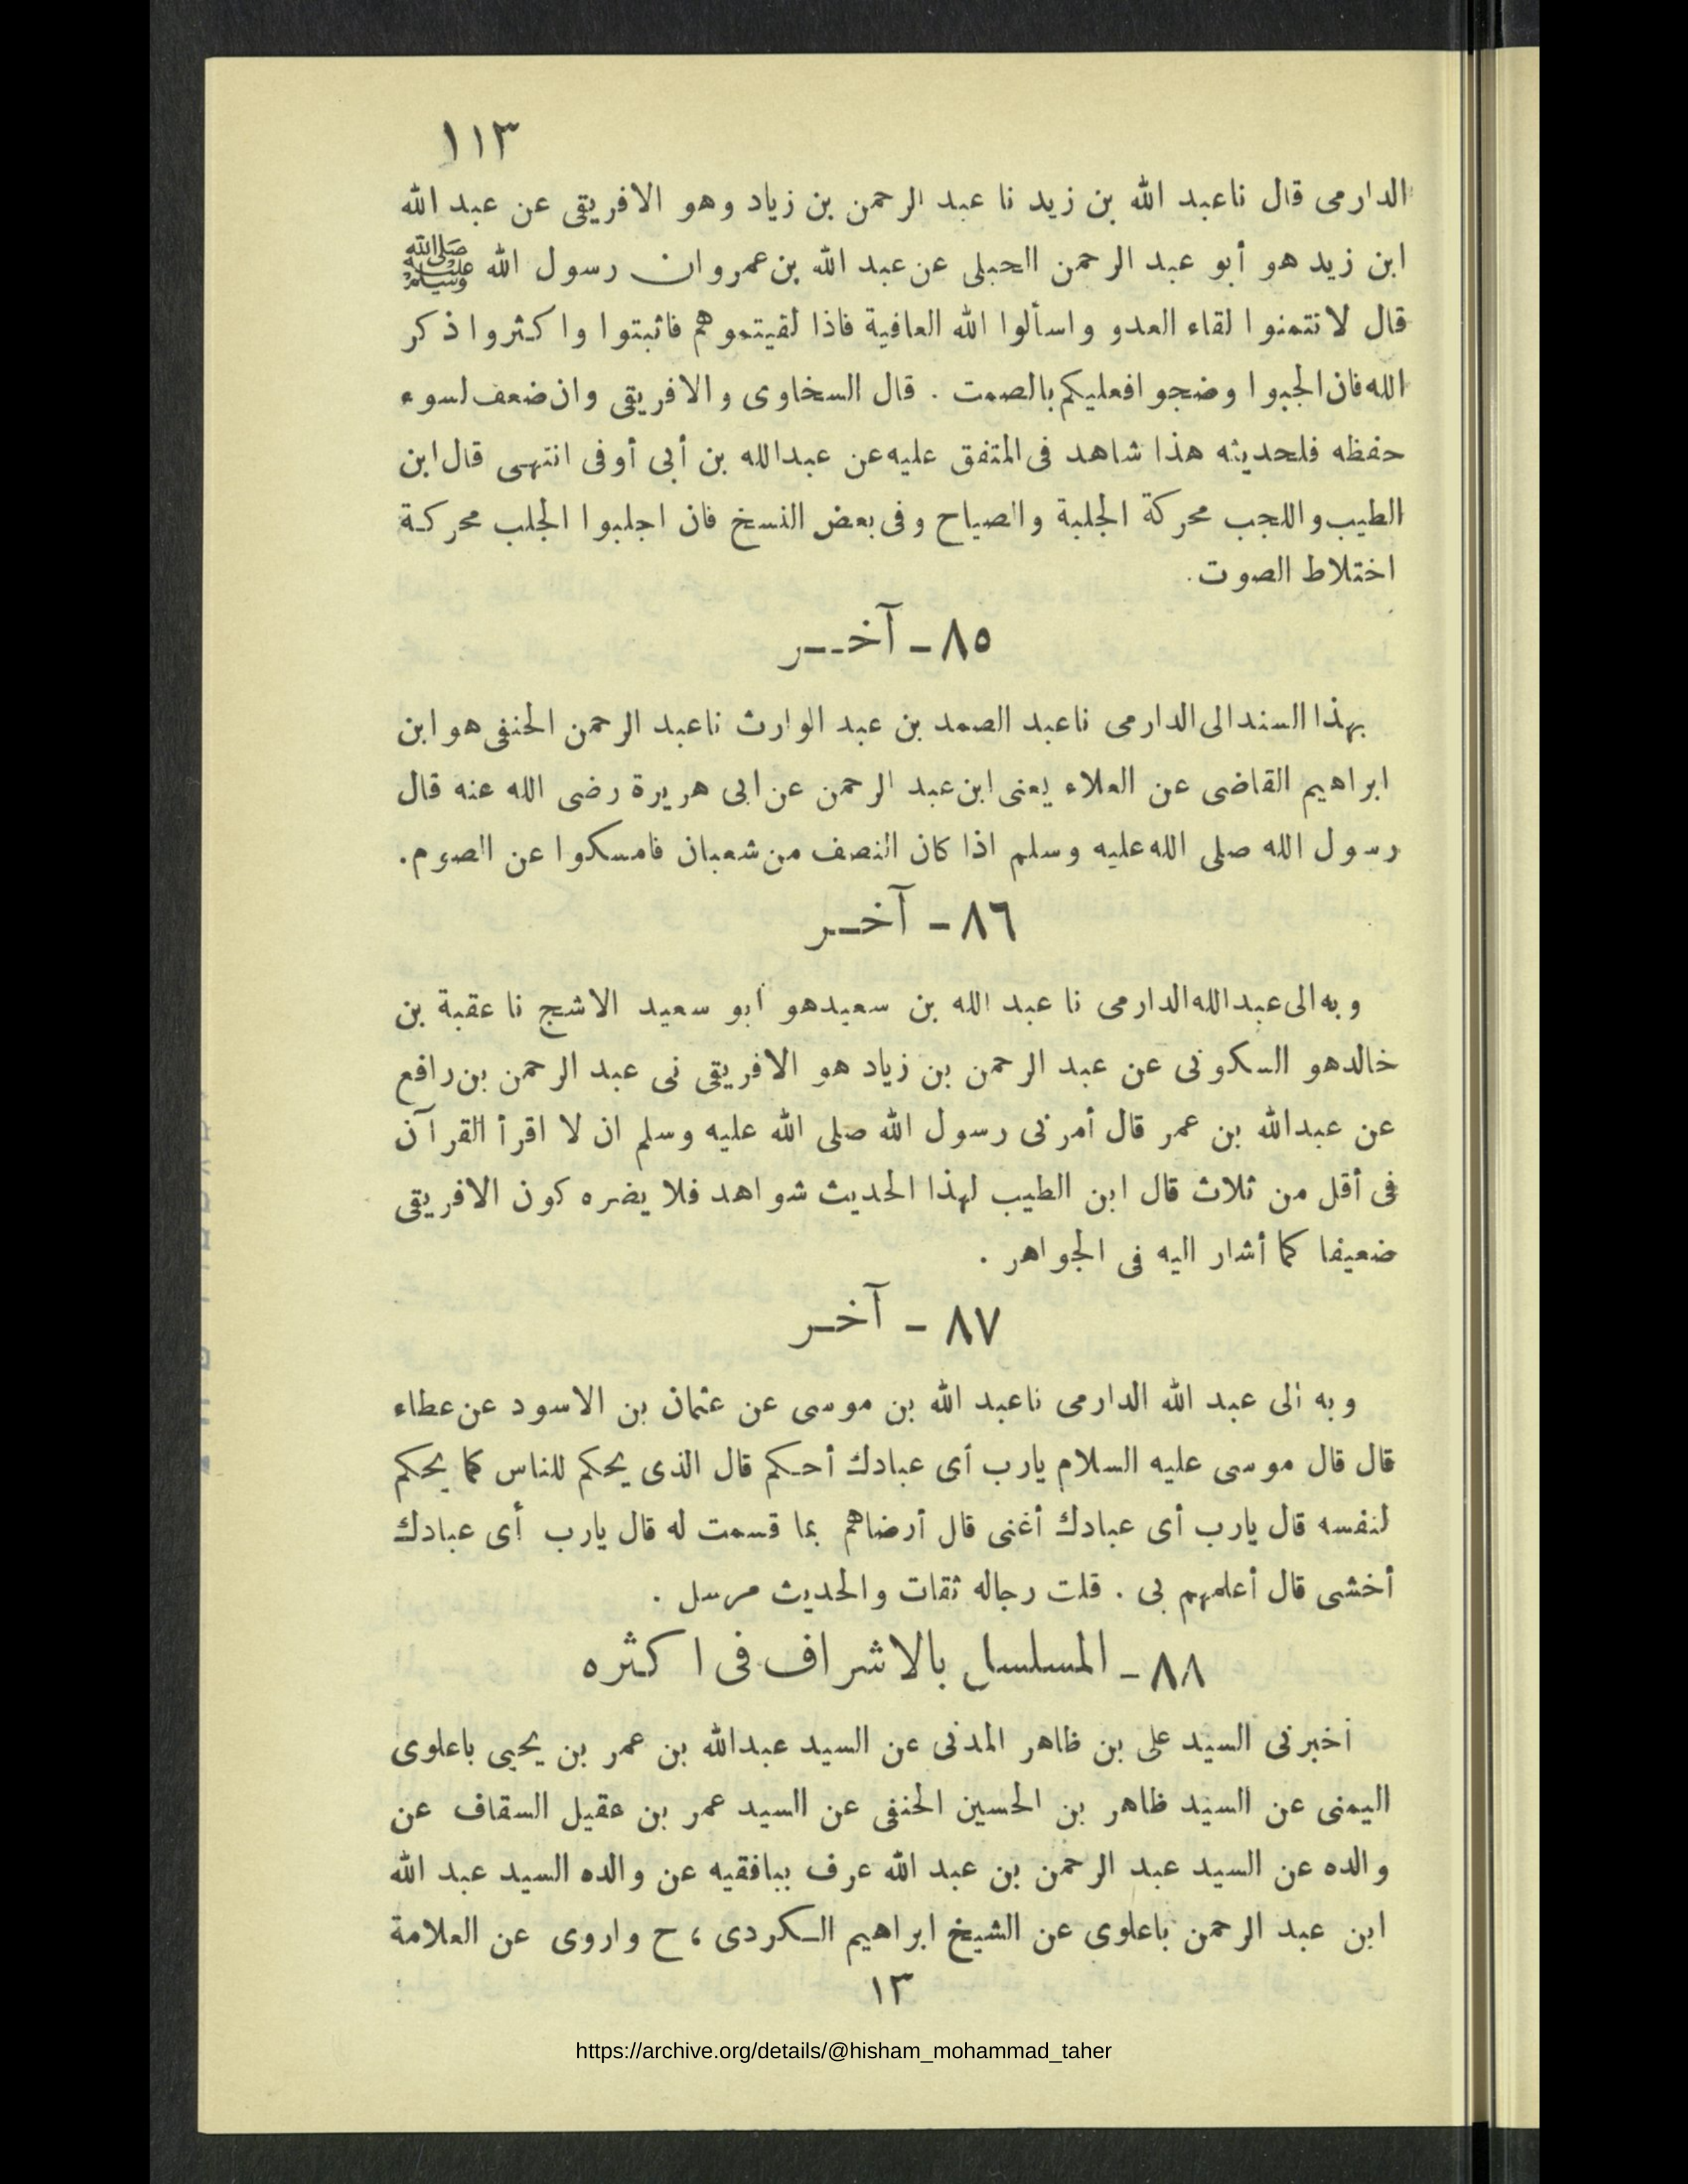 ١١٣
الدارمى قال ناعبد الله بن زيد نا عبد الرحمن بن زياد وهو الافريقى عن عبد الله
ابن زيد هو أبو عبد الرحمن الحبلى عن عبد الله بن عمروان رسول الله ﷺ
قال لا تتمنوا لقاء العدو واسألوا الله العافية فاذا لقيتموهم فاثبتوا واكثروا ذكر
الله فان الجبوا وضجوا فعليكم بالصمت . قال السخاوى والافريقى وان ضعف لسوء
حفظه فلحديثه هذا شاهد فى المتفق عليه عن عبدالله بن أبى أوفى انتهى قال ابن
الطيب واللجب محركة الجلبة والصياح وفى بعض النسخ فان اجلبوا الجلب محركة
اختلاط الصوت .
٨٥ - آخر
بهذا السند الى الدارمى ناعبد الصمد بن عبد الوارث ناعبد الرحمن الحنفى هو ابن
ابراهيم القاضى عن العلاء يعنى ابن عبد الرحمن عن ابى هريرة رضى الله عنه قال
رسول الله صلى الله عليه وسلم اذا كان النصف من شعبان فامسكوا عن الصوم .
٨٦ - آخر
وبه الى عبدالله الدارمى نا عبد الله بن سعيدهو أبو سعيد الاشج نا عقبة بن
خالدهو السكونى عن عبد الرحمن بن زياد هو الافريقى نى عبد الرحمن بن رافع
عن عبدالله بن عمر قال أمرنى رسول الله صلى الله عليه وسلم ان لا اقرأ القرآن
فى أقل من ثلاث قال ابن الطيب لهذا الحديث شواهد فلا يضره كون الافريقى
ضعيفا كما أشار اليه فى الجواهر .
٨٧ - آخر
وبه الى عبد الله الدارمى ناعبد الله بن موسى عن عثمان بن الاسود عن عطاء
قال قال موسى عليه السلام يارب أى عبادك أحكم قال الذى يحكم للناس كما يحكم
لنفسه قال يارب أى عبادك أغنى قال أرضاهم بما قسمت له قال يارب أى عبادك
أخشى قال أعلمهم بى . قلت رجاله ثقات والحديث مرسل .
٨٨ - المسلسل بالاشراف فى اكثره
أخبرنى السيد على بن ظاهر المدنى عن السيد عبدالله بن عمر بن يحيى باعلوى
اليمنى عن السيد ظاهر بن الحسين الحنفى عن السيد عمر بن عقيل السقاف عن
والده عن السيد عبد الرحمن بن عبد الله عرف ببافقيه عن والده السيد عبد الله
ابن عبد الرحمن باعلوى عن الشيخ ابراهيم الكردى ، ح واروى عن العلامة
١٣
https://archive.org/details/@hisham_mohammad_taher